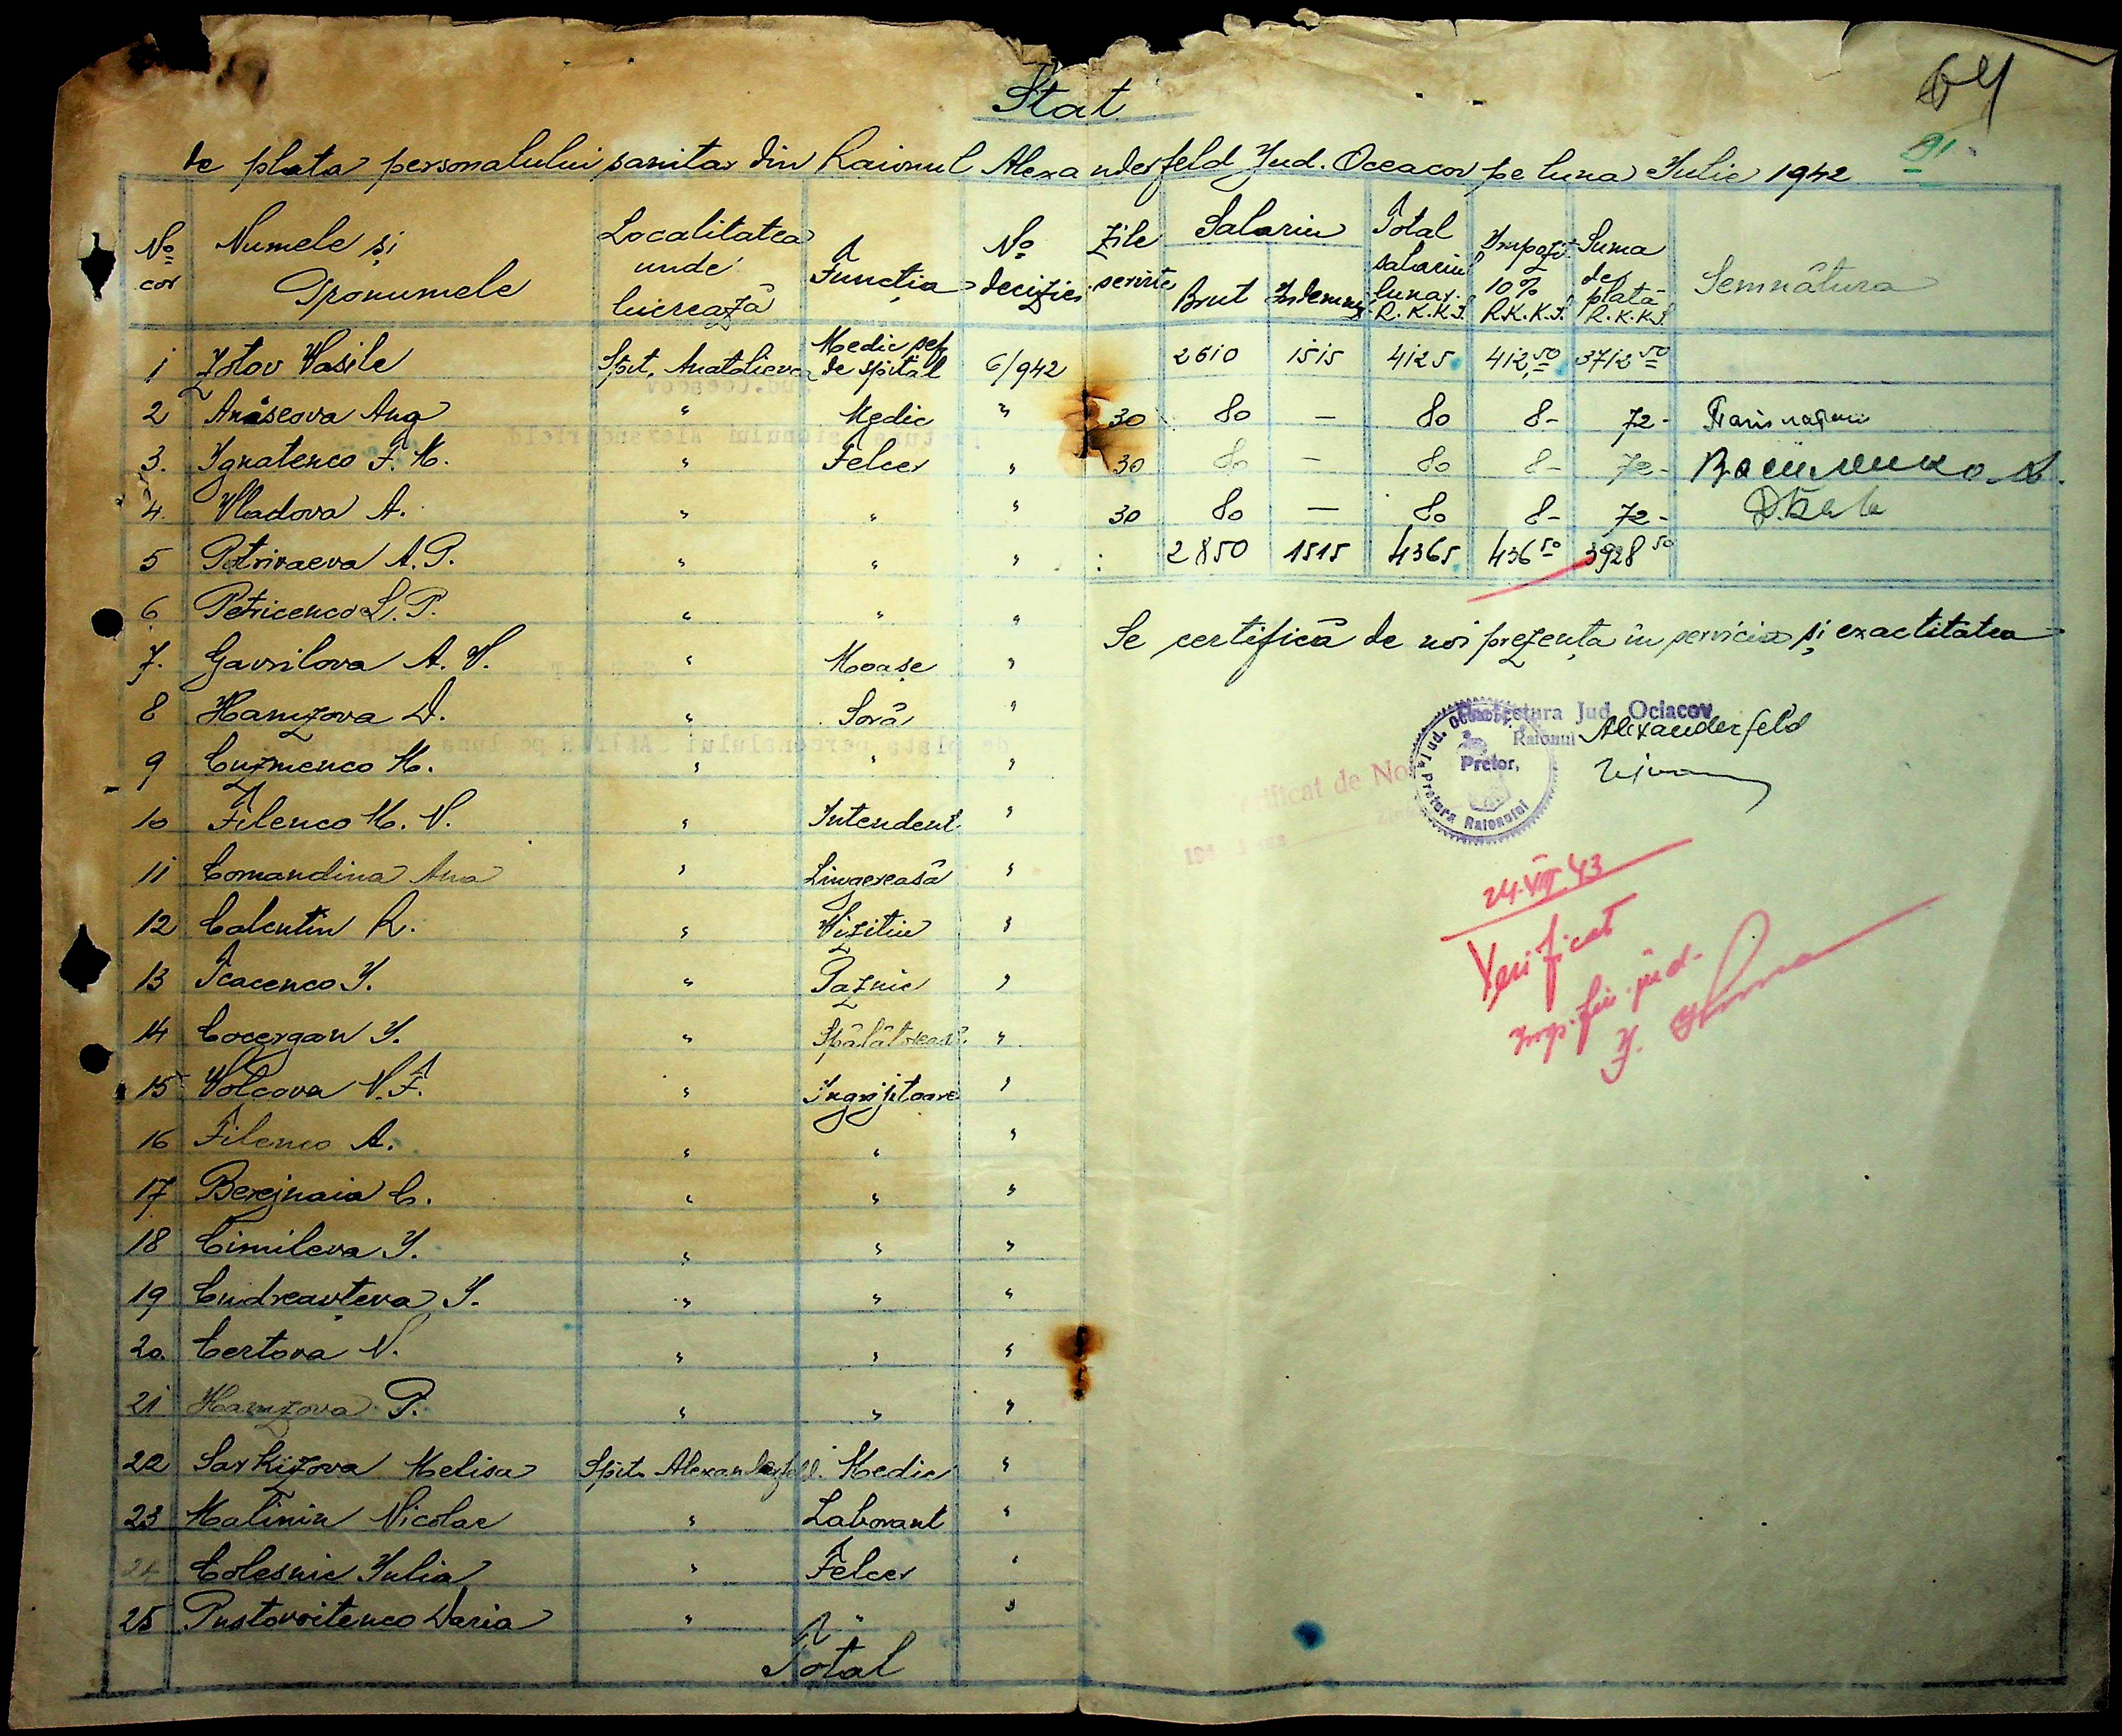 64
91
Stat
de plata personalului sanitar din Raionul Alexanderfeld Jud. Oceacov pe luna Iulie 1942
No cor | Numele și Pronumele | Localitatea unde lucrează | Funcția | No deciziei | Zile servite | Salariu Brut | Indemniz. | Total salariu lunar. R.K.K.S. | Impozit 10% R.K.K.S. | Suma de plată R.K.K.S. | Semnătura
1 Zotov Vasile Spit. Anatolievca Medic șef de spital 6/942 2610 1515 4125 412,50 3712 50
2 Anăseova Ana " Medic " 30 80 — 80 8- 72-
3. Ignatenco F. M. " Felcer " 30 80 — 80 8- 72-
4. Vladova A. " " " 30 80 — 80 8- 72-
5 Petrivaeva A. P. " " " : 2850 1515 4365 436 50 3928 50
6 Petricenco L. P. " " "
7. Gavrilova A. V. " Moașe "
8 Hamzova D. " Soră "
9 Cuzmenco M. " " "
10 Filenco M. N. " Intendent "
11 Comandina Ana " Lingereasă "
12 Calentin R. " Vizitiu "
13 Tcacenco I. " Paznic "
14 Cocergan I. " Spălătreasă "
15 Volcova N. F. " Ingrijitoare "
16 Filenco A. " " "
17 Berejnaia C. " " "
18 Cimileva I. " " "
19 Cudreavțeva I. " " "
20. Certova N. " " "
21 Hamzova P. " " "
22 Sarkizova Melisa Spit. Alexanderfeld. Medic "
23 Malinin Nicolae " Laborant "
24 Colesnic Iulia " Felcer "
25 Pustovoitenco Daria " " "
Total
Se certifică de noi prezența în serviciu și exactitatea
Prefectura Jud. Ociacov
Raionul Alexanderfeld
Pretor,
Pretura Raionului
24.VIII.43
Verificat